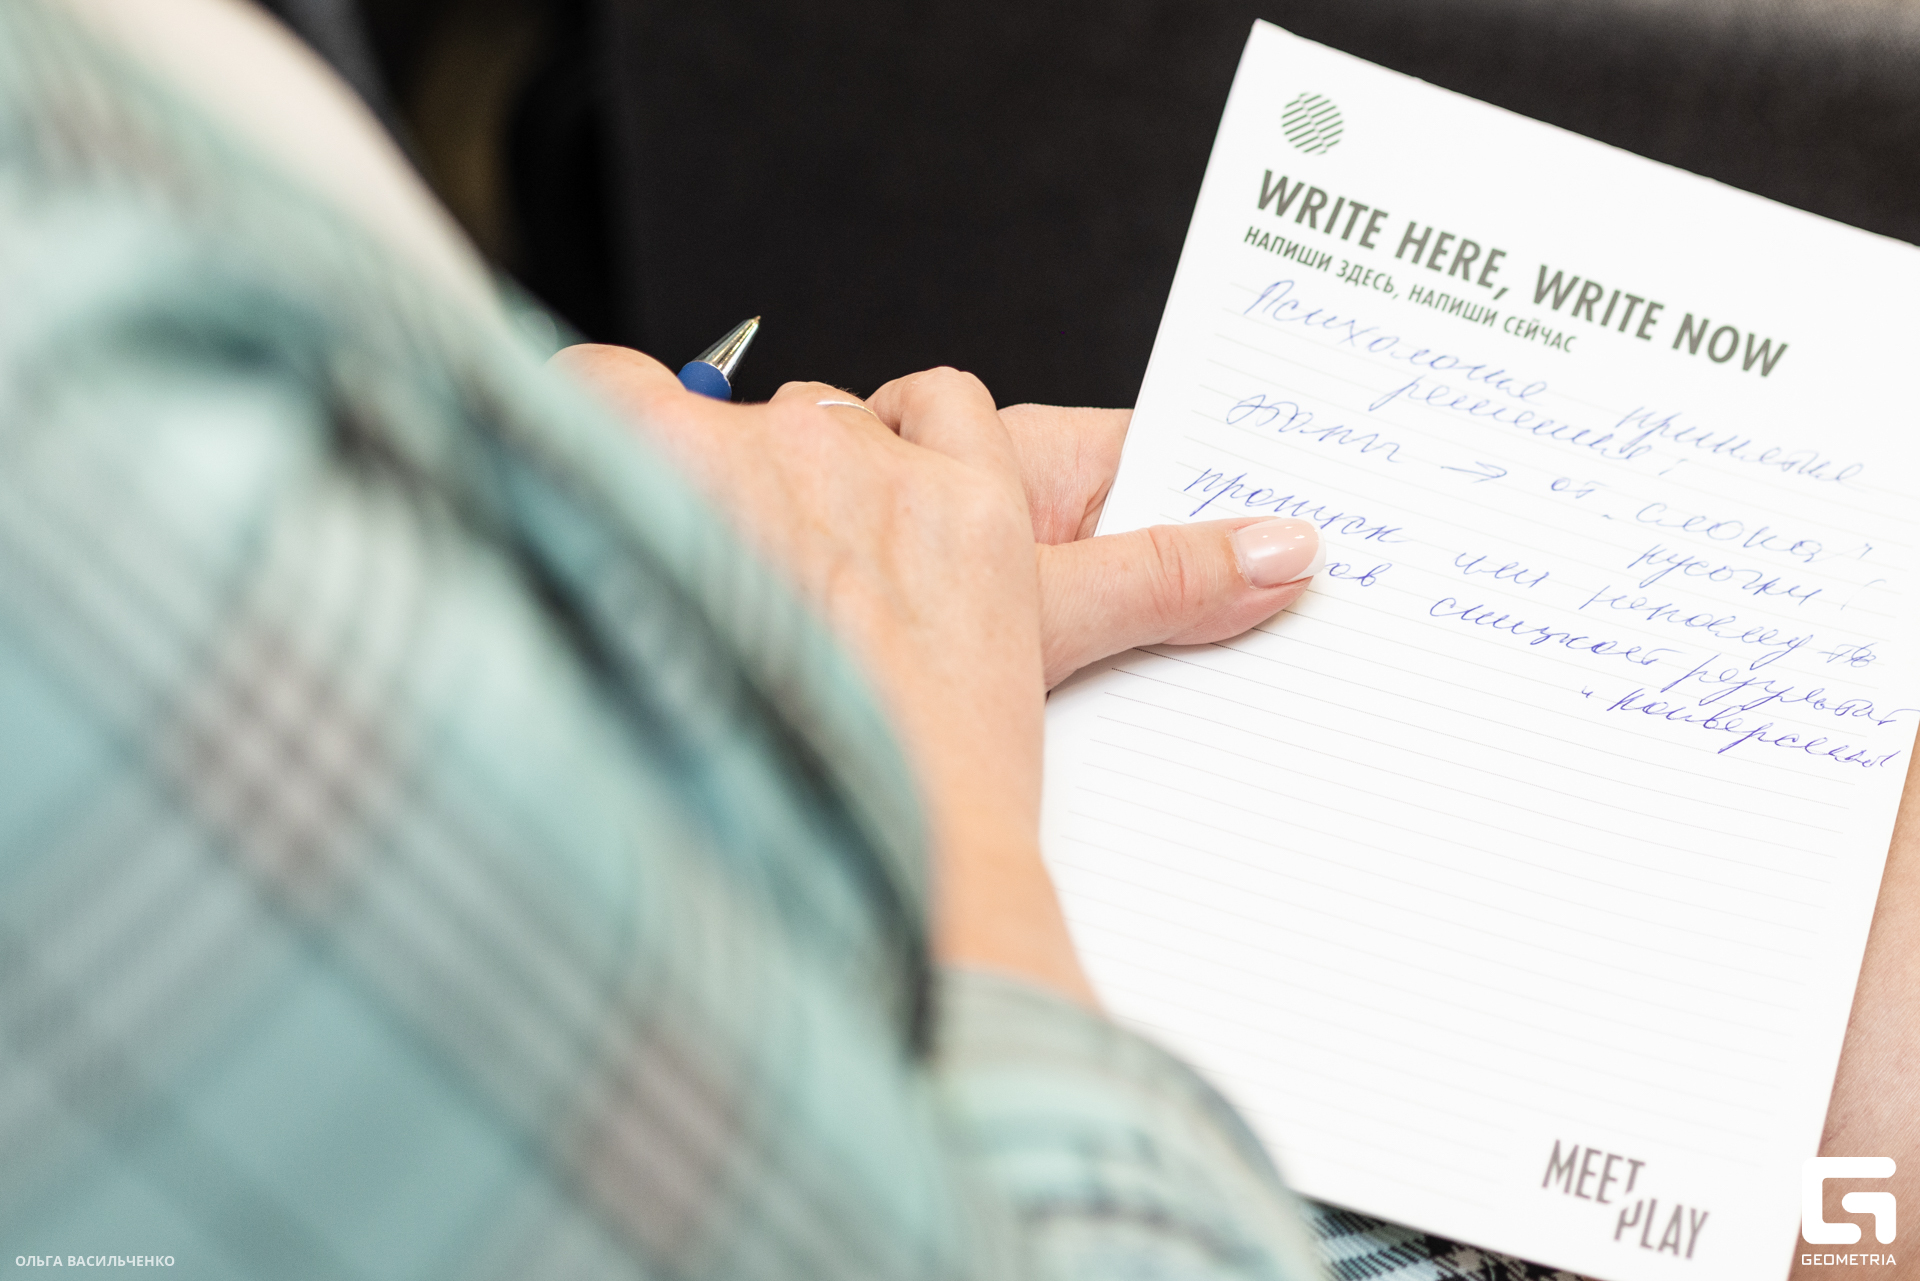 WRITE HERE, WRITE NOW
НАПИШИ ЗДЕСЬ, НАПИШИ СЕЙЧАС
Психология принятия
решения!
Этапы → от "слона"
кусочки!
пропуск или
ов снижает результат
и конверсию!
MEET
PLAY
GEOMETRIA
ОЛЬГА ВАСИЛЬЧЕНКО